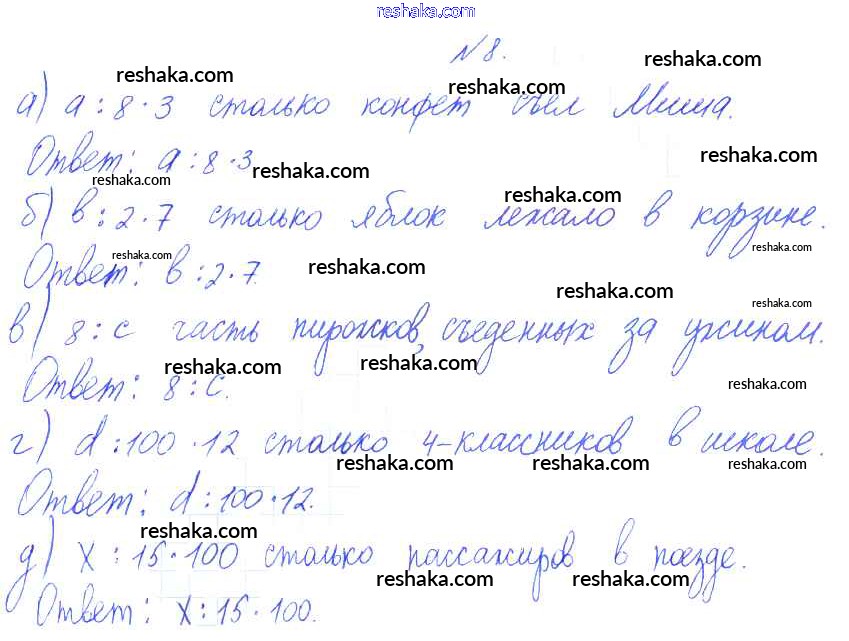 reshaka.com
N 8.
reshaka.com reshaka.com reshaka.com
а) a : 8 · 3 столько конфет съел Миша.
Ответ: a : 8 · 3
reshaka.com reshaka.com reshaka.com reshaka.com
б) в : 2 · 7 столько яблок лежало в корзине.
reshaka.com reshaka.com reshaka.com
Ответ: в : 2 · 7.
reshaka.com reshaka.com
в) 8 : c часть пирожков, съеденных за ужином.
reshaka.com reshaka.com reshaka.com
Ответ: 8 : c.
г) d : 100 · 12 столько 4-классников в школе.
reshaka.com reshaka.com reshaka.com
Ответ: d : 100 · 12.
reshaka.com
д) x : 15 · 100 столько пассажиров в поезде.
reshaka.com reshaka.com
Ответ: x : 15 · 100.